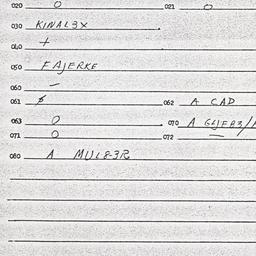 020 0 021 0
030 KINAL3X
040 +
050 FAJERKE
060 —
061 $ 062 A CAD
063 0 070 A
071 0 072 —
080 A MUL8-3R